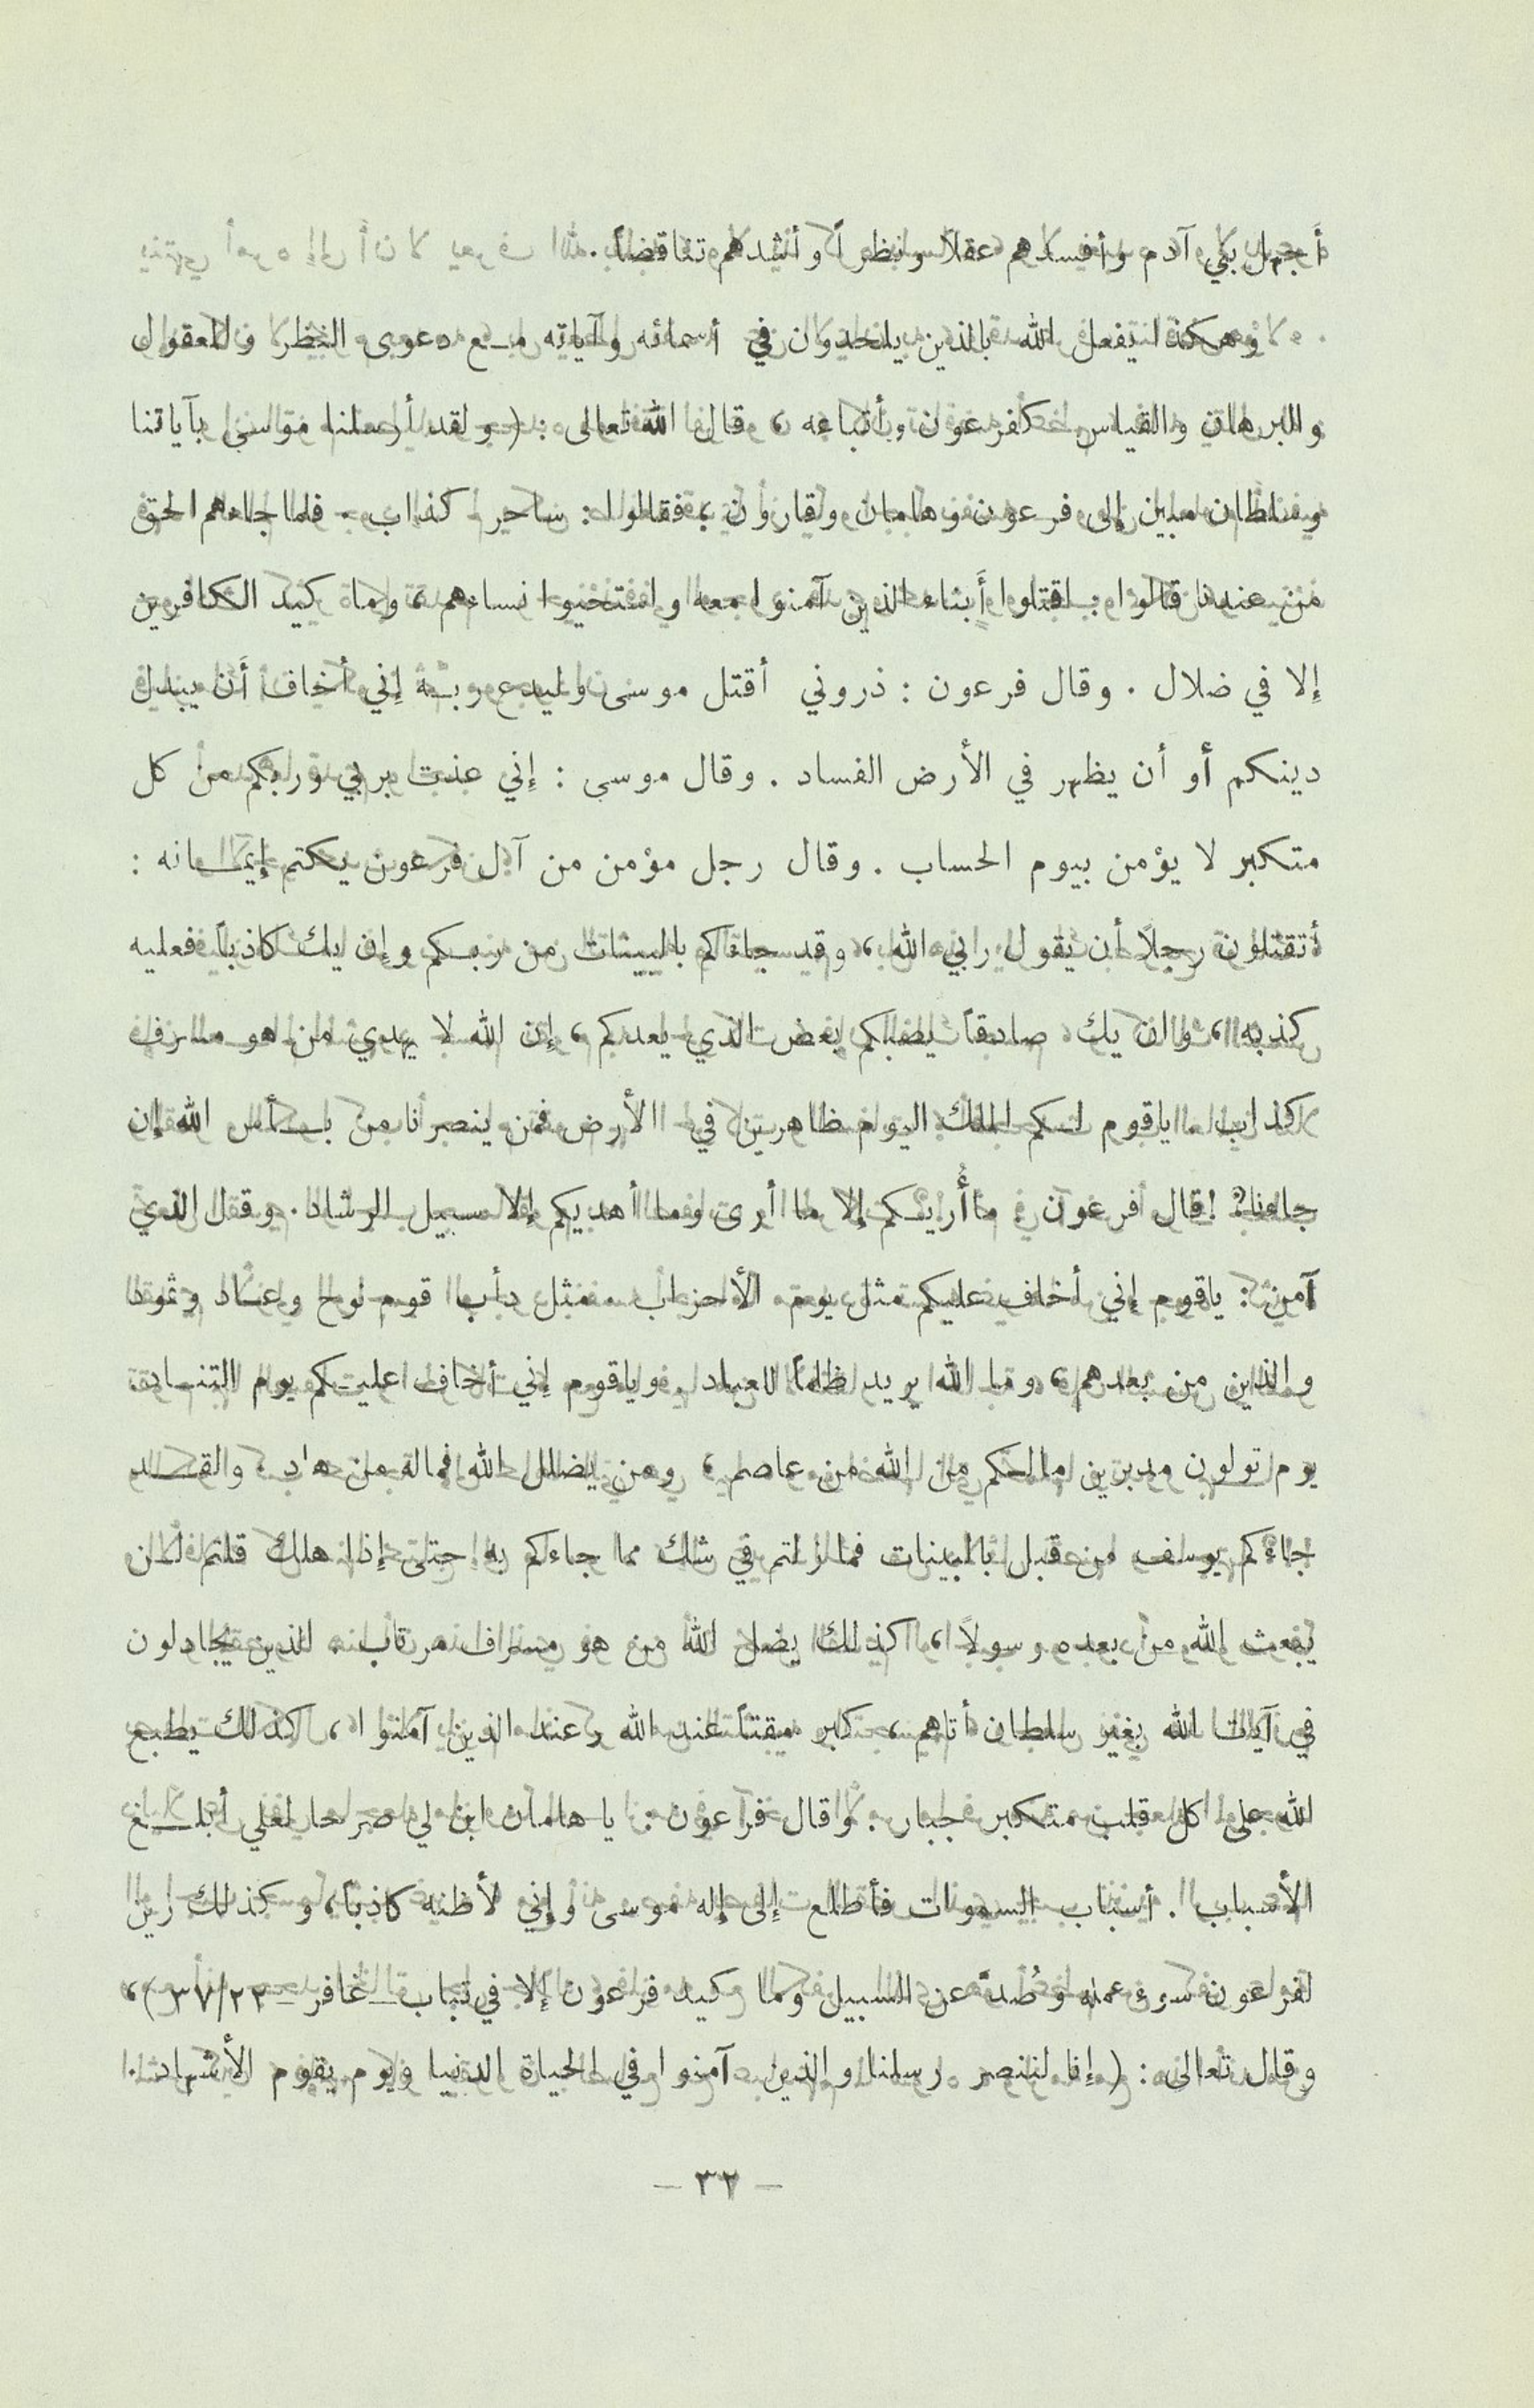 أجهل بني آدم وأفسدهم عقلاً ونظراً وأشدهم تناقضاً .
وهكذا يفعل الله بالذين يلحدون في أسمائه وآياته مع دعوى النظر والمعقول
والبرهان والقياس كفرعون وأتباعه ، قال الله تعالى : ( ولقد أرسلنا موسى بآياتنا
وسلطان مبين إلى فرعون وهامان وقارون ، فقالوا : ساحر كذاب . فلما جاءهم الحق
من عندنا قالوا : اقتلوا أبناء الذين آمنوا معه واستحيوا نساءهم ، وما كيد الكافرين
إلا في ضلال . وقال فرعون : ذروني أقتل موسى وليدع ربه إني أخاف أن يبدل
دينكم أو أن يظهر في الأرض الفساد . وقال موسى : إني عذت بربي وربكم من كل
متكبر لا يؤمن بيوم الحساب . وقال رجل مؤمن من آل فرعون يكتم إيمانه :
أتقتلون رجلاً أن يقول ربي الله ، وقد جاءكم بالبينات من ربكم وإن يك كاذباً فعليه
كذبه ، وان يك صادقاً يصبكم بعض الذي يعدكم ، إن الله لا يهدي من هو مسرف
كذاب . ياقوم لكم الملك اليوم ظاهرين في الأرض فمن ينصرنا من بأس الله إن
جاءنا ? ! قال فرعون : ما أُريكم إلا ما أرى وما أهديكم إلا سبيل الرشاد . وقال الذي
آمن : ياقوم إني أخاف عليكم مثل يوم الأحزاب . مثل دأب قوم نوح وعاد وثمود
والذين من بعدهم ، وما الله يريد ظلماً للعباد . وياقوم إني أخاف عليكم يوم التناد .
يوم تولون مدبرين مالكم من الله من عاصم ، ومن يضلل الله فماله من هاد . ولقد
جاءكم يوسف من قبل بالبينات فما زلتم في شك مما جاءكم به حتى إذا هلك قلتم لن
يبعث الله من بعده رسولاً ، كذلك يضل الله من هو مسرف مرتاب . الذين يجادلون
في آيات الله بغير سلطان أتاهم ، كبر مقتاً عند الله وعند الذين آمنوا ، كذلك يطبع
الله على كل قلب متكبر جبار . وقال فرعون : يا هامان ابن لي صرحا لعلي أبلغ
الأسباب . أسباب السموات فأطلع إلى إله موسى وإني لأظنه كاذباً ، وكذلك زين
لفرعون سوء عمله وصُدَّ عن السبيل وما كيد فرعون إلا في تباب - غافر - ٣٧/٢٣ ) ،
وقال تعالى : ( إنا لننصر رسلنا والذين آمنوا في الحياة الدنيا ويوم يقوم الأشهاد .
- ٣٢ -